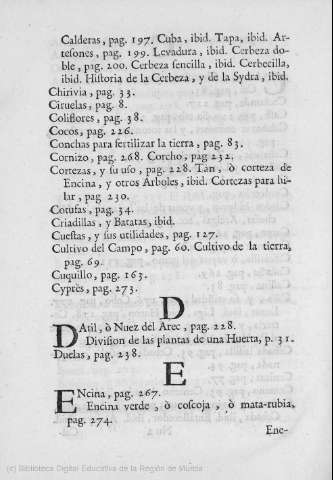 Calderas, pag. 197. Cuba, ibid. Tapa, ibid. Ar-
tesones, pag. 199. Levadura, ibid. Cerbeza do-
ble, pag. 200. Cerbeza sencilla, ibid. Cerbecilla,
ibid. Historia de la Cerbeza, y de la Sydra, ibid.
Chirivia, pag. 33.
Ciruelas, pag. 8.
Coliflores, pag. 38.
Cocos, pag. 226.
Conchas para fertilizar la tierra, pag. 83.
Cornizo, pag. 268. Corcho, pag 232.
Cortezas, y su uso, pag. 228. Tan, ò corteza de
Encina, y otros Arboles, ibid. Cortezas para hi-
lar, pag 230.
Cotufas, pag. 34.
Criadillas, y Batatas, ibid.
Cuestas, y sus utilidades, pag. 127.
Cultivo del Campo, pag. 60. Cultivo de la tierra,
pag. 69.
Cuquillo, pag. 163.
Cyprès, pag. 273.
D
DAtil, ò Nuez del Arec, pag. 228.
Division de las plantas de una Huerta, p. 31.
Duelas, pag. 238.
E
ENcina, pag. 267.
Encina verde, ò coscoja, ò mata-rubia,
pag. 274.
Ene-
(c) Biblioteca Digital Educativa de la Región de Murcia